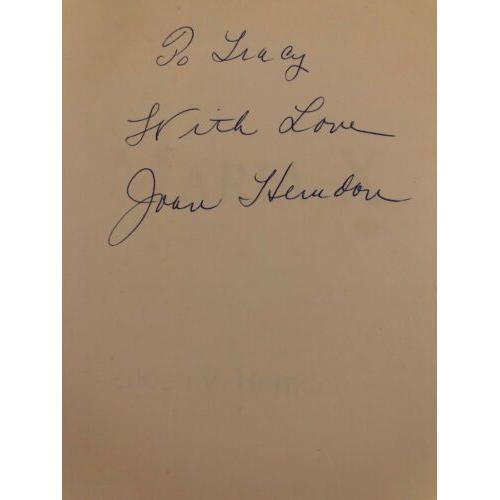 To Tracy
With Love
Joan Herndon